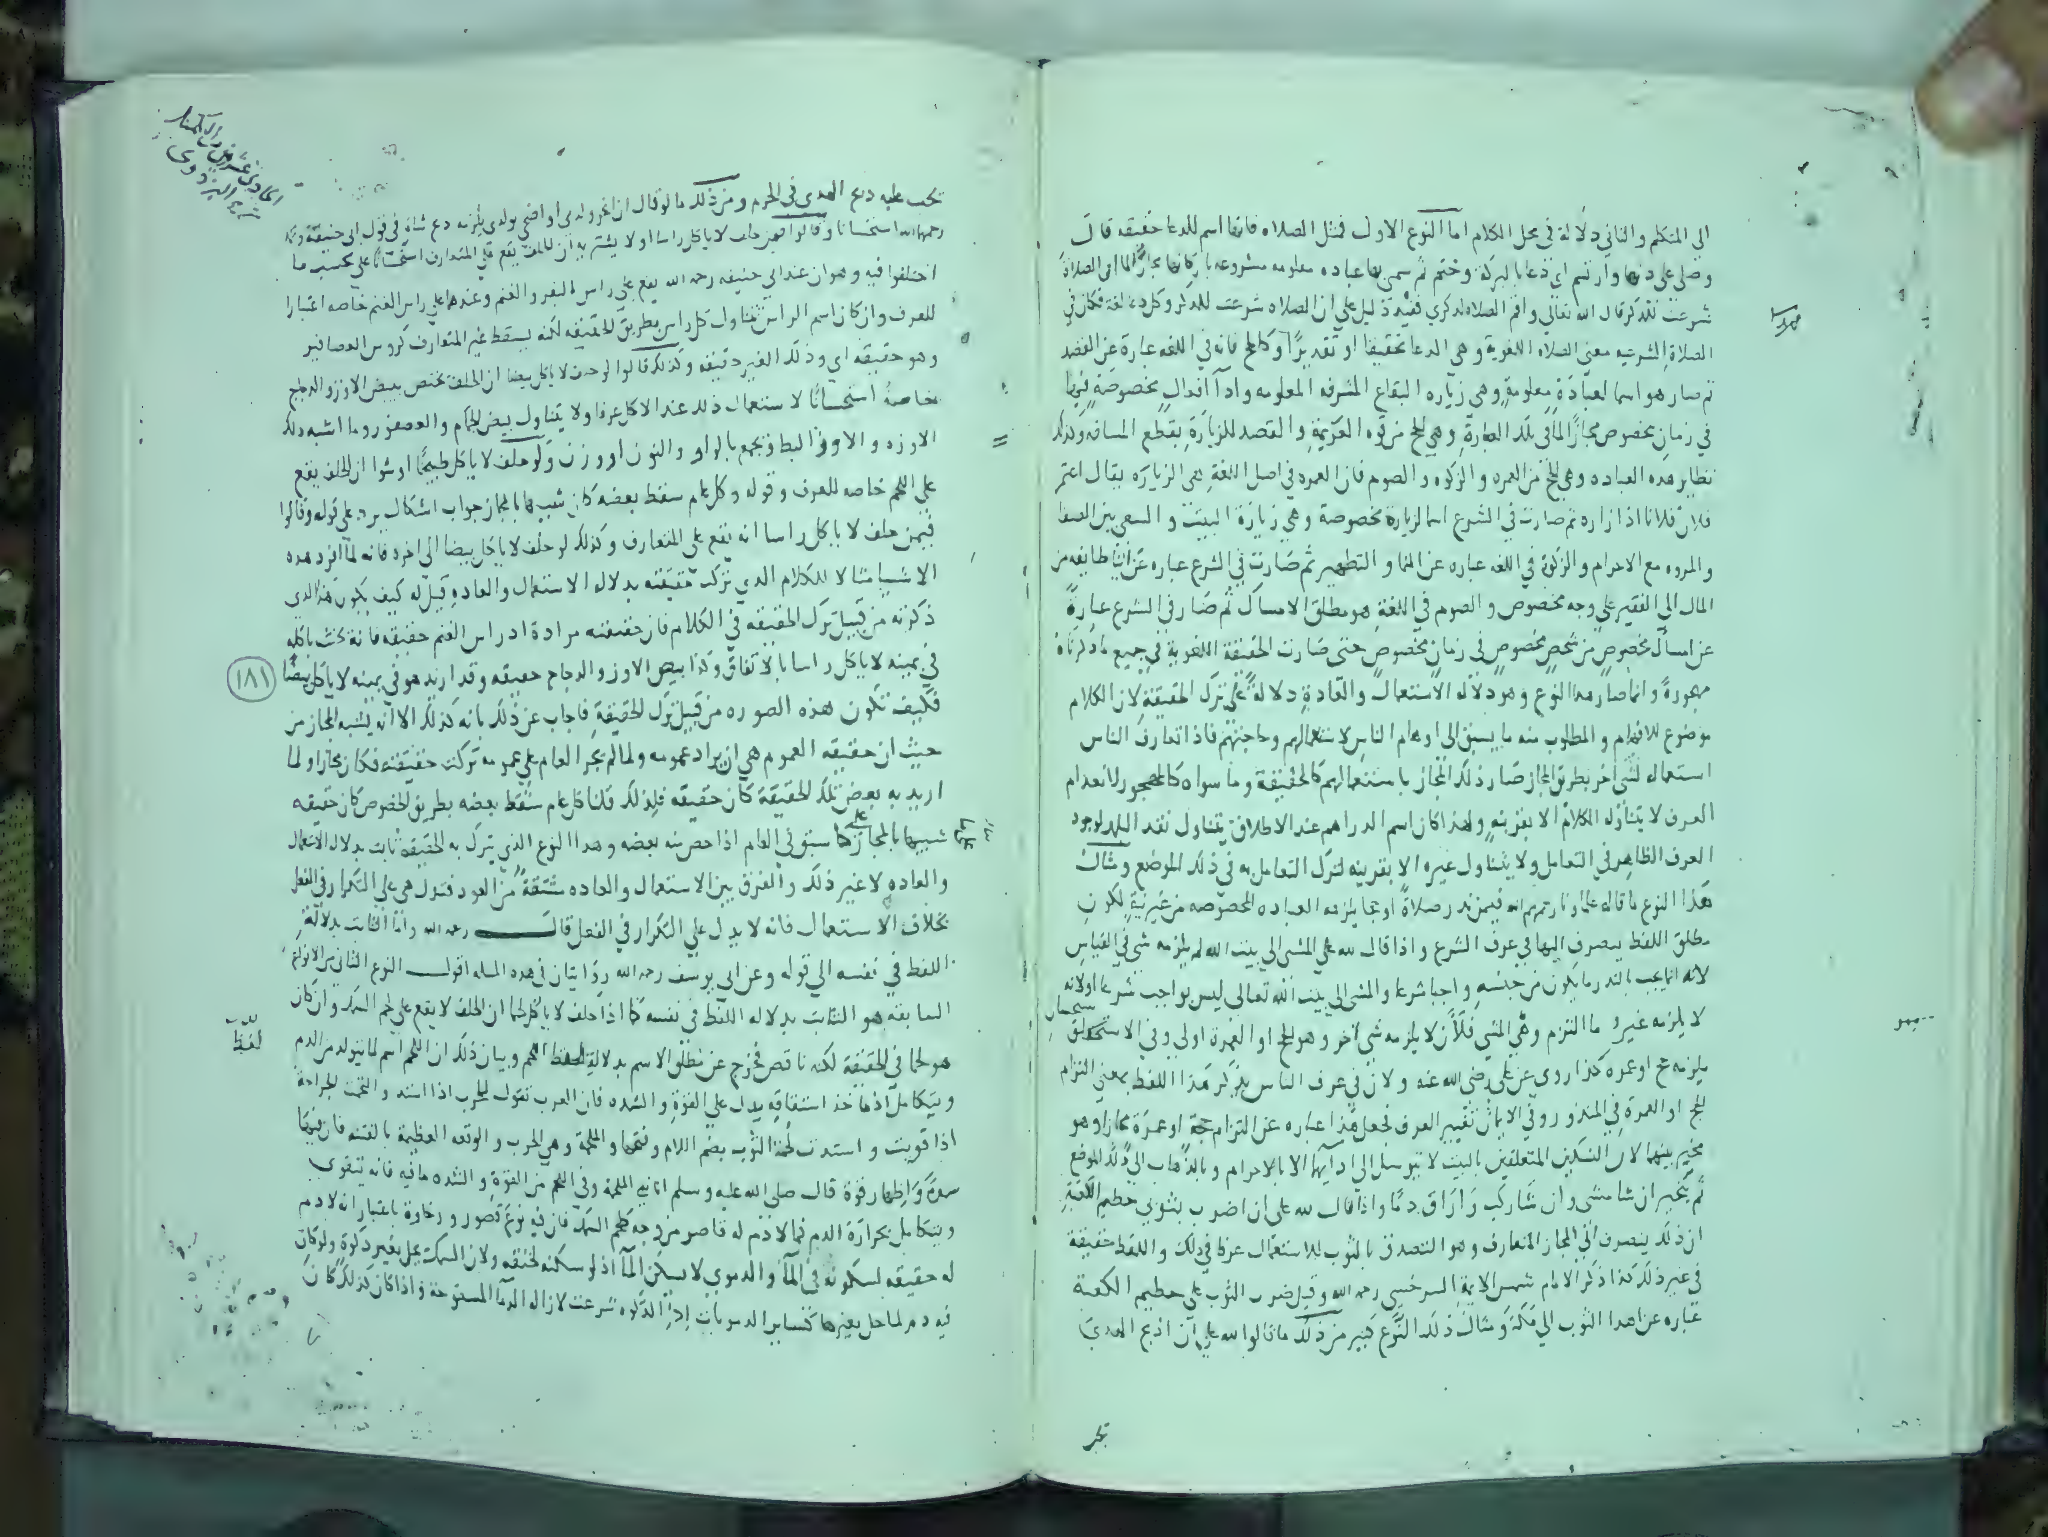 الي المتكلم والثاني دلالة في محل الكلام اما النوع الاول فمثل الصلاه فانها اسم للدعا حقيقه قال
وصلى على دنها وارتسم اي دعا بالبركة وختم ثم سمي بها عباده معلومه مشروعه باركانها مجازا لما ان الصلاة
شرعت للذكر قال الله تعالي واقم الصلاه لذكري ففيه دليل علي ان الصلاه شرعت للذكر وكل دعا لغة فكان في
الصلاة الشرعيه معني الصلاه اللغوية وهي الدعا تحقيقا او تقديرا وكالحج فانه في اللغه عبارة عن القصد
ثم صار هو اسما لعبادة معلومة وهي زياره البقاع المشرفه المعلومه وادآ افعال مخصوصة فيها
في زمان مخصوص مجازا لما في تلك العبارة وهي الحج من قوه العزيمة والقصد للزيارة بقطع المسافه وكذلك
نظاير هذه العباده وهي الحج من العمره والزكوه والصوم فان العمره في اصل اللغة هي الزيارة يقال اعتمر
فلان فلانا اذا زاره ثم صارت في الشرع اسما لزيارة مخصوصة وهي زيارة البيت والسعي بين الصفا
والمروه مع الاحرام والزكوة في اللغه عباره عن النما والتطهير ثم صارت في الشرع عباره عن ايتا طايفه من
المال الي الفقير علي وجه مخصوص والصوم في اللغة هو مطلق الامساك ثم صار في الشرع عبارة
عن امساك مخصوص من شخص مخصوص في زمان مخصوص حتى صارت الحقيقة اللغوية في جميع ما ذكرناه
مهجورة وانما صار هذا النوع وهو دلاله الاستعمال والعادة دلالة علي ترك الحقيقة لان الكلام
موضوع للافهام والمطلوب منه ما يسبق الي اوهام الناس لاستعمالهم وحاجتهم فاذا تعارف الناس
استعماله لشي اخر بطريق المجاز صار ذلك المجاز باستعمالهم كالحقيقة وما سواه كالمهجور لانعدام
العرف لا يتناوله الكلام الا بقرينة ولهذا كان اسم الدراهم عند الاطلاق يتناول نقد البلد لوجود
العرف الظاهر في التعامل ولا يتناول غيره الا بقرينه لترك التعامل به في ذلك الموضع ومثال
هذا النوع ما قاله علماونا رحمهم الله فيمن نذر صلاة او حجا يلزمه العباده المخصوصه من غير نية لكون
مطلق اللفظ ينصرف اليها في عرف الشرع واذا قال لله علي المشي الي بيت الله لم يلزمه شي في القياس
لانه انما يجب بالنذر ما يكون من جنسه واجبا شرعا والمشي الي بيت الله تعالى ليس بواجب شرعا او لانه
لا يلزمه غير ما التزم وهي المشي فلان لا يلزمه شي آخر وهو الحج او العمرة اولي وفي الاستحسان
يلزمه حج او عمره كذا روي عن علي رضي الله عنه ولان في عرف الناس يذكر هذا اللفظ بمعني التزام
الحج او العمرة في المنذور وفي الايمان تعتبر العرف فجعل هذا عباره عن التزام حجة او عمرة مجازا وهو
مخير بينهما لان النسكين المتعلقين بالبيت لا يتوسل الي ادآيهما الا بالاحرام وبالذهاب الي ذلك الموضع
ثم يتخير ان شا مشى وان شا ركب واراق دما واذا قال لله علي ان اضرب بثوبي حطيم الكعبة
ان ذلك ينصرف الي المجاز المتعارف وهو التصدق بالثوب للاستعمال عرفا في ذلك واللفظ حقيقة
في غير ذلك كذا ذكر الامام شمس الايمة السرخسي رحمه الله وقيل ضرب الثوب علي حطيم الكعبة
عباره عن اهدا الثوب الي مكة ومثال ذلك النوع كثير من ذلك ما قالوا لله علي ان اذبح الهدي
سهو
تجب
الحادي عشر من
شرح البزدوي
تجب عليه ذبح الهدي في الحرم ومن ذلك ما لو قال ان انحر ولدي او اضحي بولدي يلزمه ذبح شاة في قول ابي حنيفة ومحمد
رحمهما الله استحسانا وقالوا فيمن حلف لا ياكل راسا او لا يشتريه ان الحلف يقع علي المتعارف استحسانا علي حسب ما
اختلفوا فيه وهو ان عند ابي حنيفه رحمه الله يقع علي راس البقر والغنم وعندهما علي راس الغنم خاصه اعتبارا
للعرف وان كان اسم الراس يتناول كل راس بطريق الحقيقه لكنه يسقط غير المتعارف كروس العصافير
وهو حقيقه اي وذلك الغير حقيقه وكذلك قالوا لو حلف لا ياكل بيضا ان الحلف يختص ببيض الاوز والدجاج
خاصة استحسانا لاستعمال ذلك عند الاكل عرفا ولا يتناول بيض الحمام والعصفور وما اشبه ذلك
الاوزه والاوز البط ويجمع بالواو والنون اوزون ولو حلف لا ياكل طبيخا او شوا ان الحلف يقع
علي اللحم خاصه للعرف وقوله وكل عام سقط بعضه كان شبيها بالمجاز جواب اشكال يرد علي قوله وقالوا
فيمن حلف لا ياكل راسا انه يقع علي المتعارف وكذلك لو حلف لا ياكل بيضا الي اخره فانه لما افرد هذه
الاشيا مثالا للكلام الذي تركت حقيقته بدلاله الاستعمال والعادة قيل له كيف يكون هذا الذي
ذكرته من قبيل ترك الحقيقه في الكلام فان حقيقته مرادة اذ راس الغنم حقيقه فانه يحنث باكله
في يمينه لا ياكل راسا بالاتفاق وكذا بيض الاوز والدجاج حقيقه وقد اريد هو في يمينه لا ياكل بيضا
١٨١
فكيف تكون هذه الصوره من قبيل ترك الحقيقة فاجاب عن ذلك بانه كذلك الا انه يشبه المجاز من
حيث ان حقيقه العموم هي ان يراد عمومه ولما لم يجر العام علي عمومه تركت حقيقته فكان مجازا ولما
اريد به بعض تلك الحقيقة كان حقيقه فلذلك قلنا كل عام سقط بعضه بطريق الخصوص كان حقيقه
شبيها بالمجاز علي ما سبق في العام اذا خص منه بعضه وهذا النوع الذي يترك به الحقيقه ثابت بدلاله الاستعمال
والعاده لا غير ذلك والفرق بين الاستعمال والعاده مشتقة من العود فتدل هي علي التكرار في الفعل
بخلاف الاستعمال فانه لا يدل علي التكرار في الفعل قال رحمه الله واما الثابت بدلالة
اللفظ في نفسه الي قوله وعن ابي يوسف رحمه الله روايتان في هذه المساله اقول النوع الثاني من الانواع
السابقه هو الثابت بدلاله اللفظ في نفسه كما اذا حلف لا ياكل لحما ان الحلف لا يقع علي لحم السمك وان كان
هو لحما في الحقيقة لكنه ناقص فخرج عن مطلق الاسم بدلالة لفظ اللحم وبيان ذلك ان اللحم اسم لما يتولد من الدم
لفظ
ويتكامل اذ ماخذ اشتقاقه يدل علي القوة والشده فان العرب تقول التحم الحرب اذا اشتد والتحمت الجراحة
اذا قويت واشتدت لحمة الثوب بضم اللام وفتحها والملحمة وهي الحرب والوقعه العظيمة بالفتنه فان فيها
شدة واظهار قوة قال صلى الله عليه وسلم انا نبي الملحمة وفي اللحم من القوة والشده ما فيه فانه يتقوي
ويتكامل بحرارة الدم فما لا دم له قاصر من وجه كلحم السمك فان فيه نوع قصور ورخاوة باعتبار انه لا دم
له حقيقه لسكونه في المآ والدموي لا يسكن المآ اذ لو سكنه لخنقه ولان السمك يحل بغير ذكوة ولو كان
فيه دم لما حل بغيرها كساير الدمويات اذ الذكوه شرعت لازاله الدمآ المسفوحة واذا كان كذلك كان